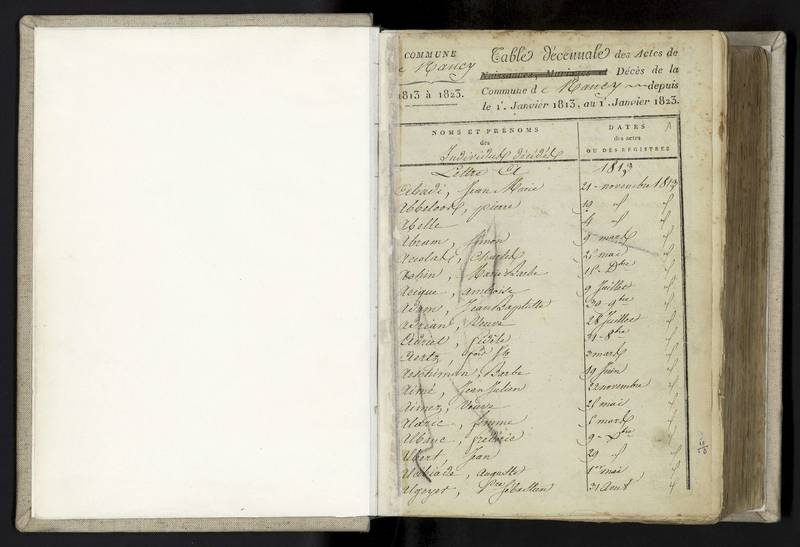 COMMUNE
Nancy
1813 à 1823.
Table décennale des Actes de
Naissances, Mariages Décès de la
Commune de Nancy depuis
le 1r. Janvier 1813, au 1r. Janvier 1823.
NOMS ET PRÉNOMS
des
Individus décédés
DATES
des actes
OU DES REGISTRES
Lettre A 1813
Jean Marie 21 novembre 1813
pierre 19 d
Abelle 4 d
Abram, Simon 9 mars d
Charles 25 mai d
Marie Barbe 15 Dbre d
ambroise 9 Juillet d
Adam, Jean Baptiste 30 9bre d
Adrian, Veuve 28 Juillet d
fidèle 31 8bre d
Aertz, 3 mars d
Aeschiman, Barbe 19 Juin d
Aimé, Jean Julien 22 novembre d
Aimez, Veuve mai d
Alaric, femme mars d
Albane, frédéric 9 d
Albert, Jean 29 d
Auguste 1er mai d
Algeyer, Sébastien 31 Aout d